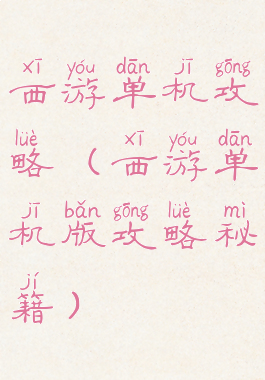 xī yóu dān jī gōng
西游单机攻
lüè xī yóu dān
略（西游单
jī bǎn gōng lüè mì
机版攻略秘
jí
籍）